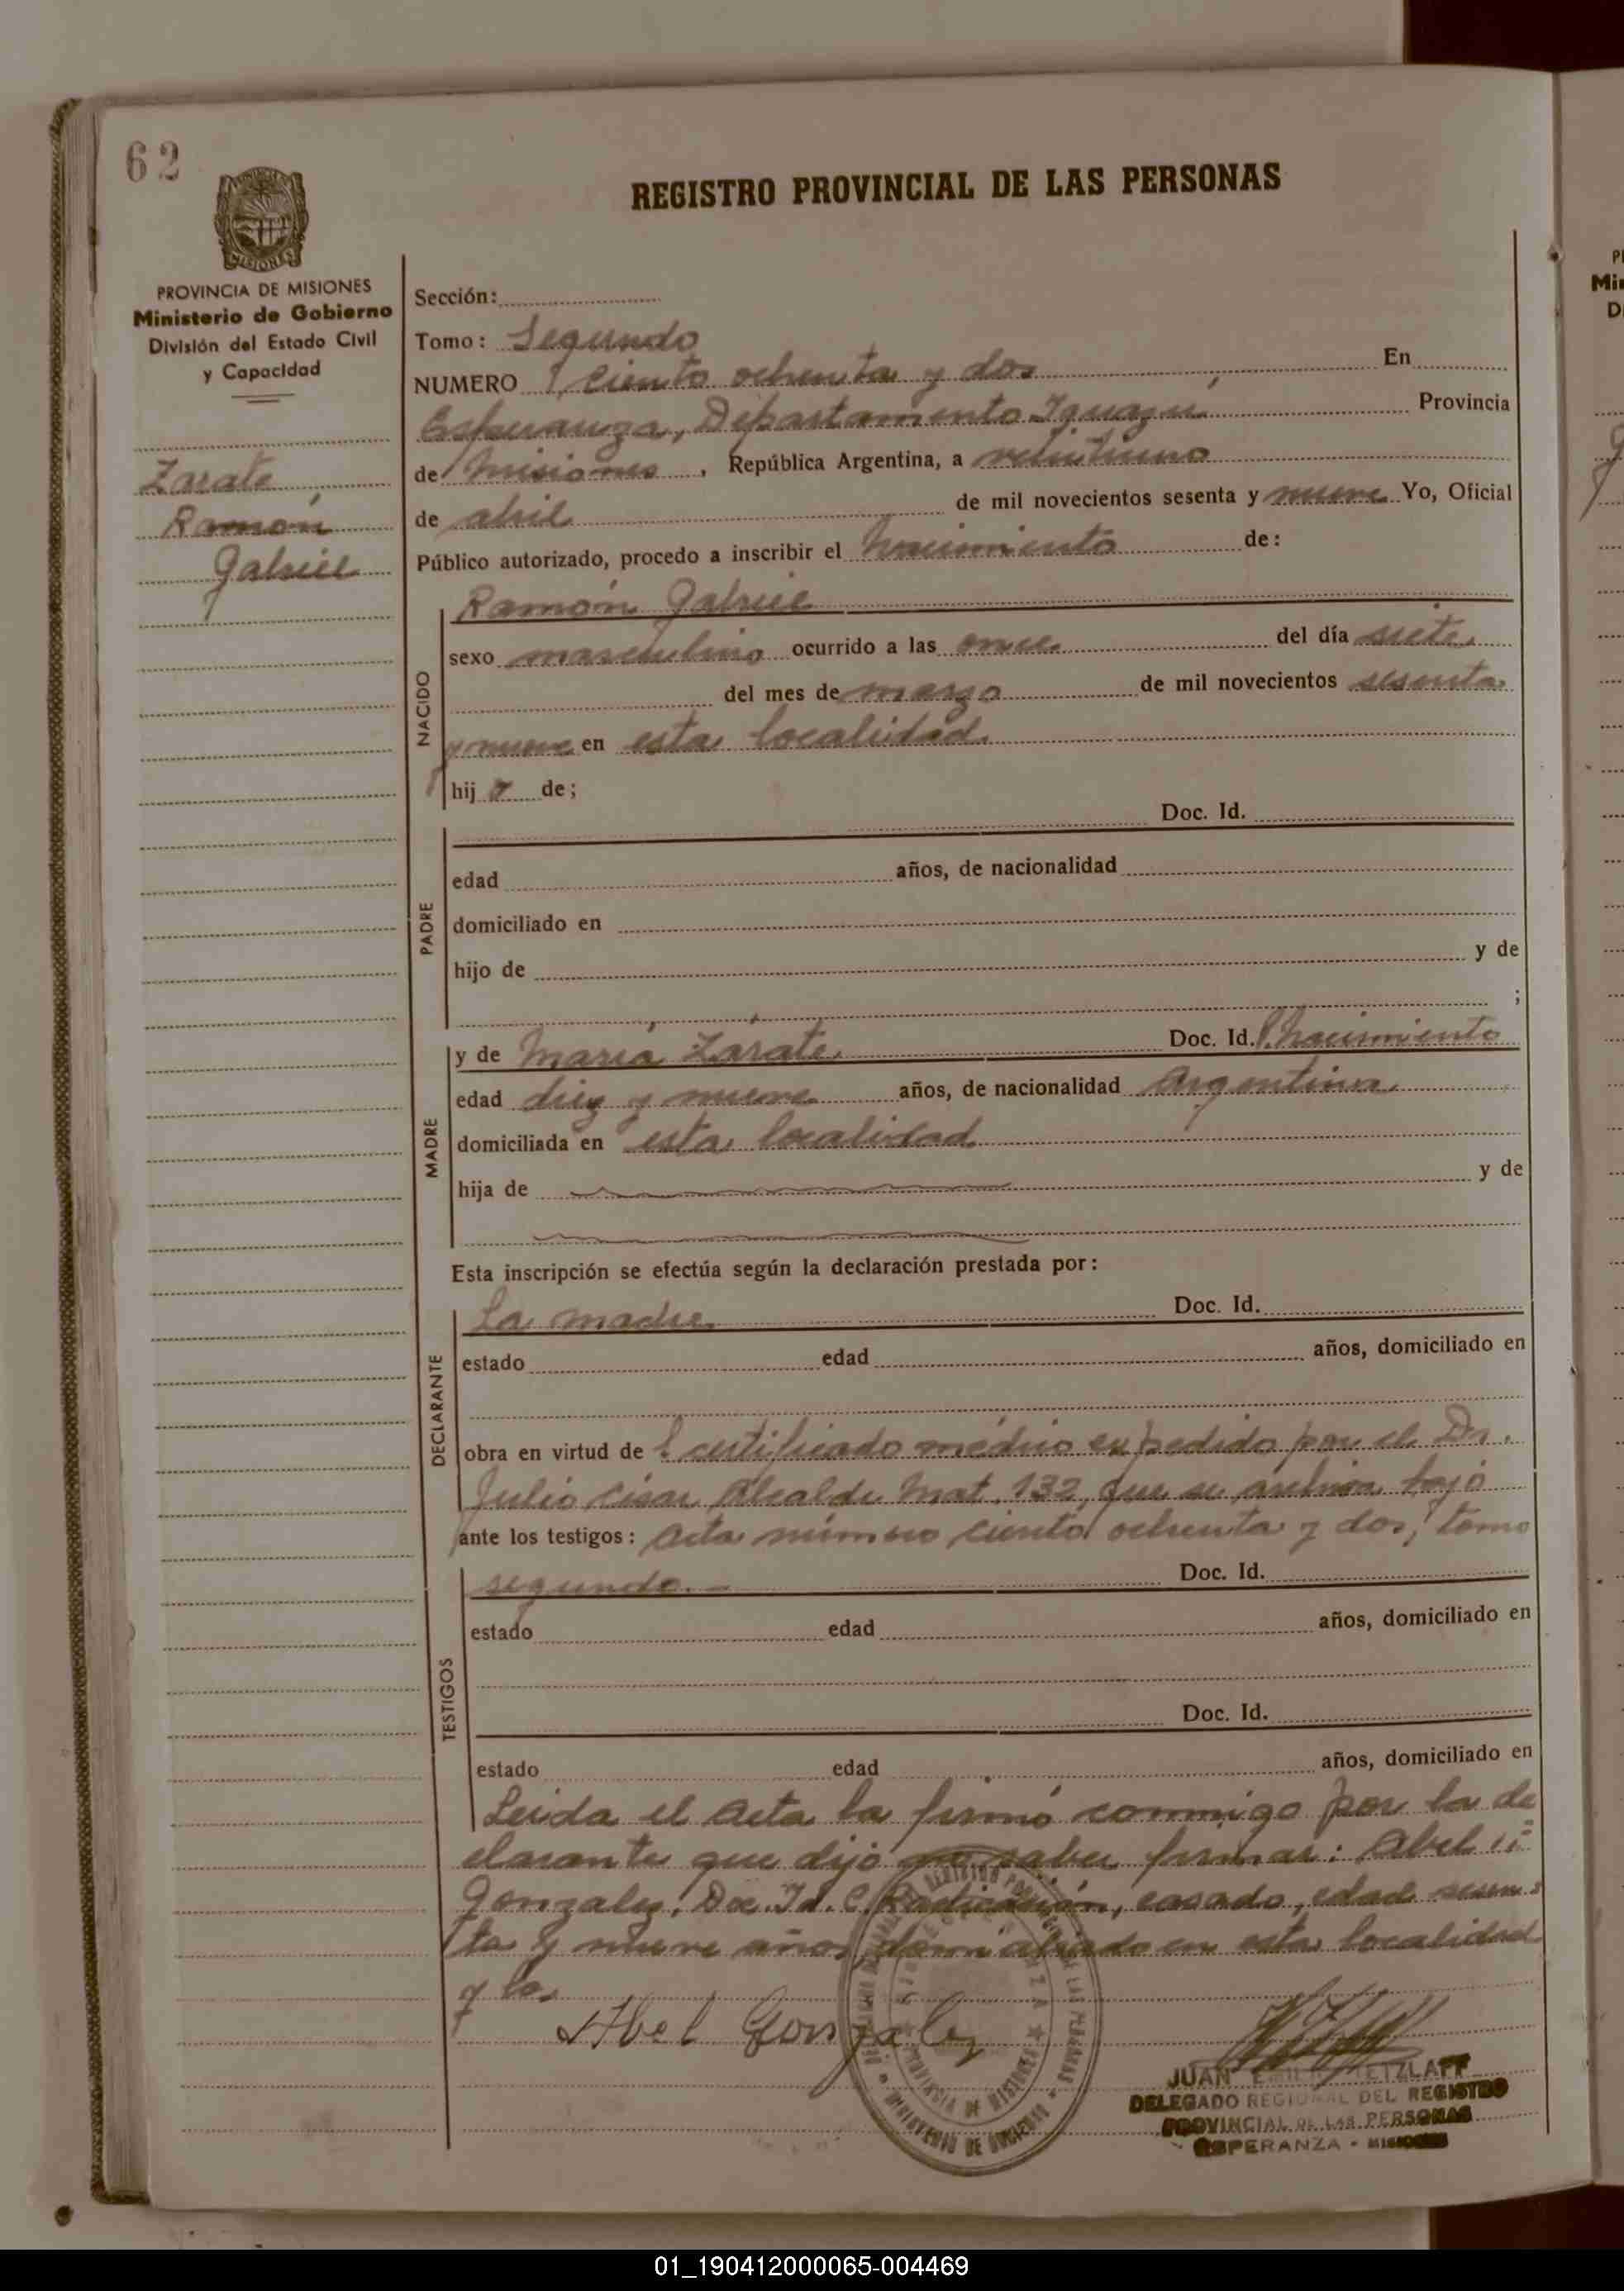 62
REGISTRO PROVINCIAL DE LAS PERSONAS
MISIONES
PROVINCIA DE MISIONES
Ministerio de Gobierno
División del Estado Civil
y Capacidad
Zarate
Ramón
Gabriel
Sección:
Tomo: Segundo
NUMERO ciento ochenta y dos En
Esperanza, Departamento Iguazú Provincia
de Misiones, República Argentina, a veintiuno
de abril de mil novecientos sesenta y nueve Yo, Oficial
Público autorizado, procedo a inscribir el nacimiento de:
NACIDO
Ramón Gabriel
sexo masculino ocurrido a las once del día siete
del mes de marzo de mil novecientos sesenta
y nueve en esta localidad
hijo de;
PADRE
Doc. Id.
edad años, de nacionalidad
domiciliado en
hijo de y de
;
MADRE
y de María Zárate Doc. Id. P. nacimiento
edad diez y nueve años, de nacionalidad Argentina
domiciliada en esta localidad
hija de y de
Esta inscripción se efectúa según la declaración prestada por:
DECLARANTE
La madre Doc. Id.
estado edad años, domiciliado en
obra en virtud de certificado médico expedido por el Dr.
Julio César Alcalde Mat. 132, que se archiva bajo
ante los testigos: acta número ciento ochenta y dos, tomo
TESTIGOS
segundo.- Doc. Id.
estado edad años, domiciliado en
Doc. Id.
estado edad años, domiciliado en
Leida el acta la firmó conmigo por la de
clarante que dijo no saber firmar: Abel
Gonzalez, Doc. Id. C. Radicación, casado, edad sesen-
ta y nueve años, domiciliado en esta localidad
y lo
Abel Gonzalez
JUAN EMILIO RETZLAFF
DELEGADO REGIONAL DEL REGISTRO
PROVINCIAL DE LAS PERSONAS
ESPERANZA - MISIONES
PROVINCIA DE MISIONES
MINISTERIO DE GOBIERNO
01_190412000065-004469